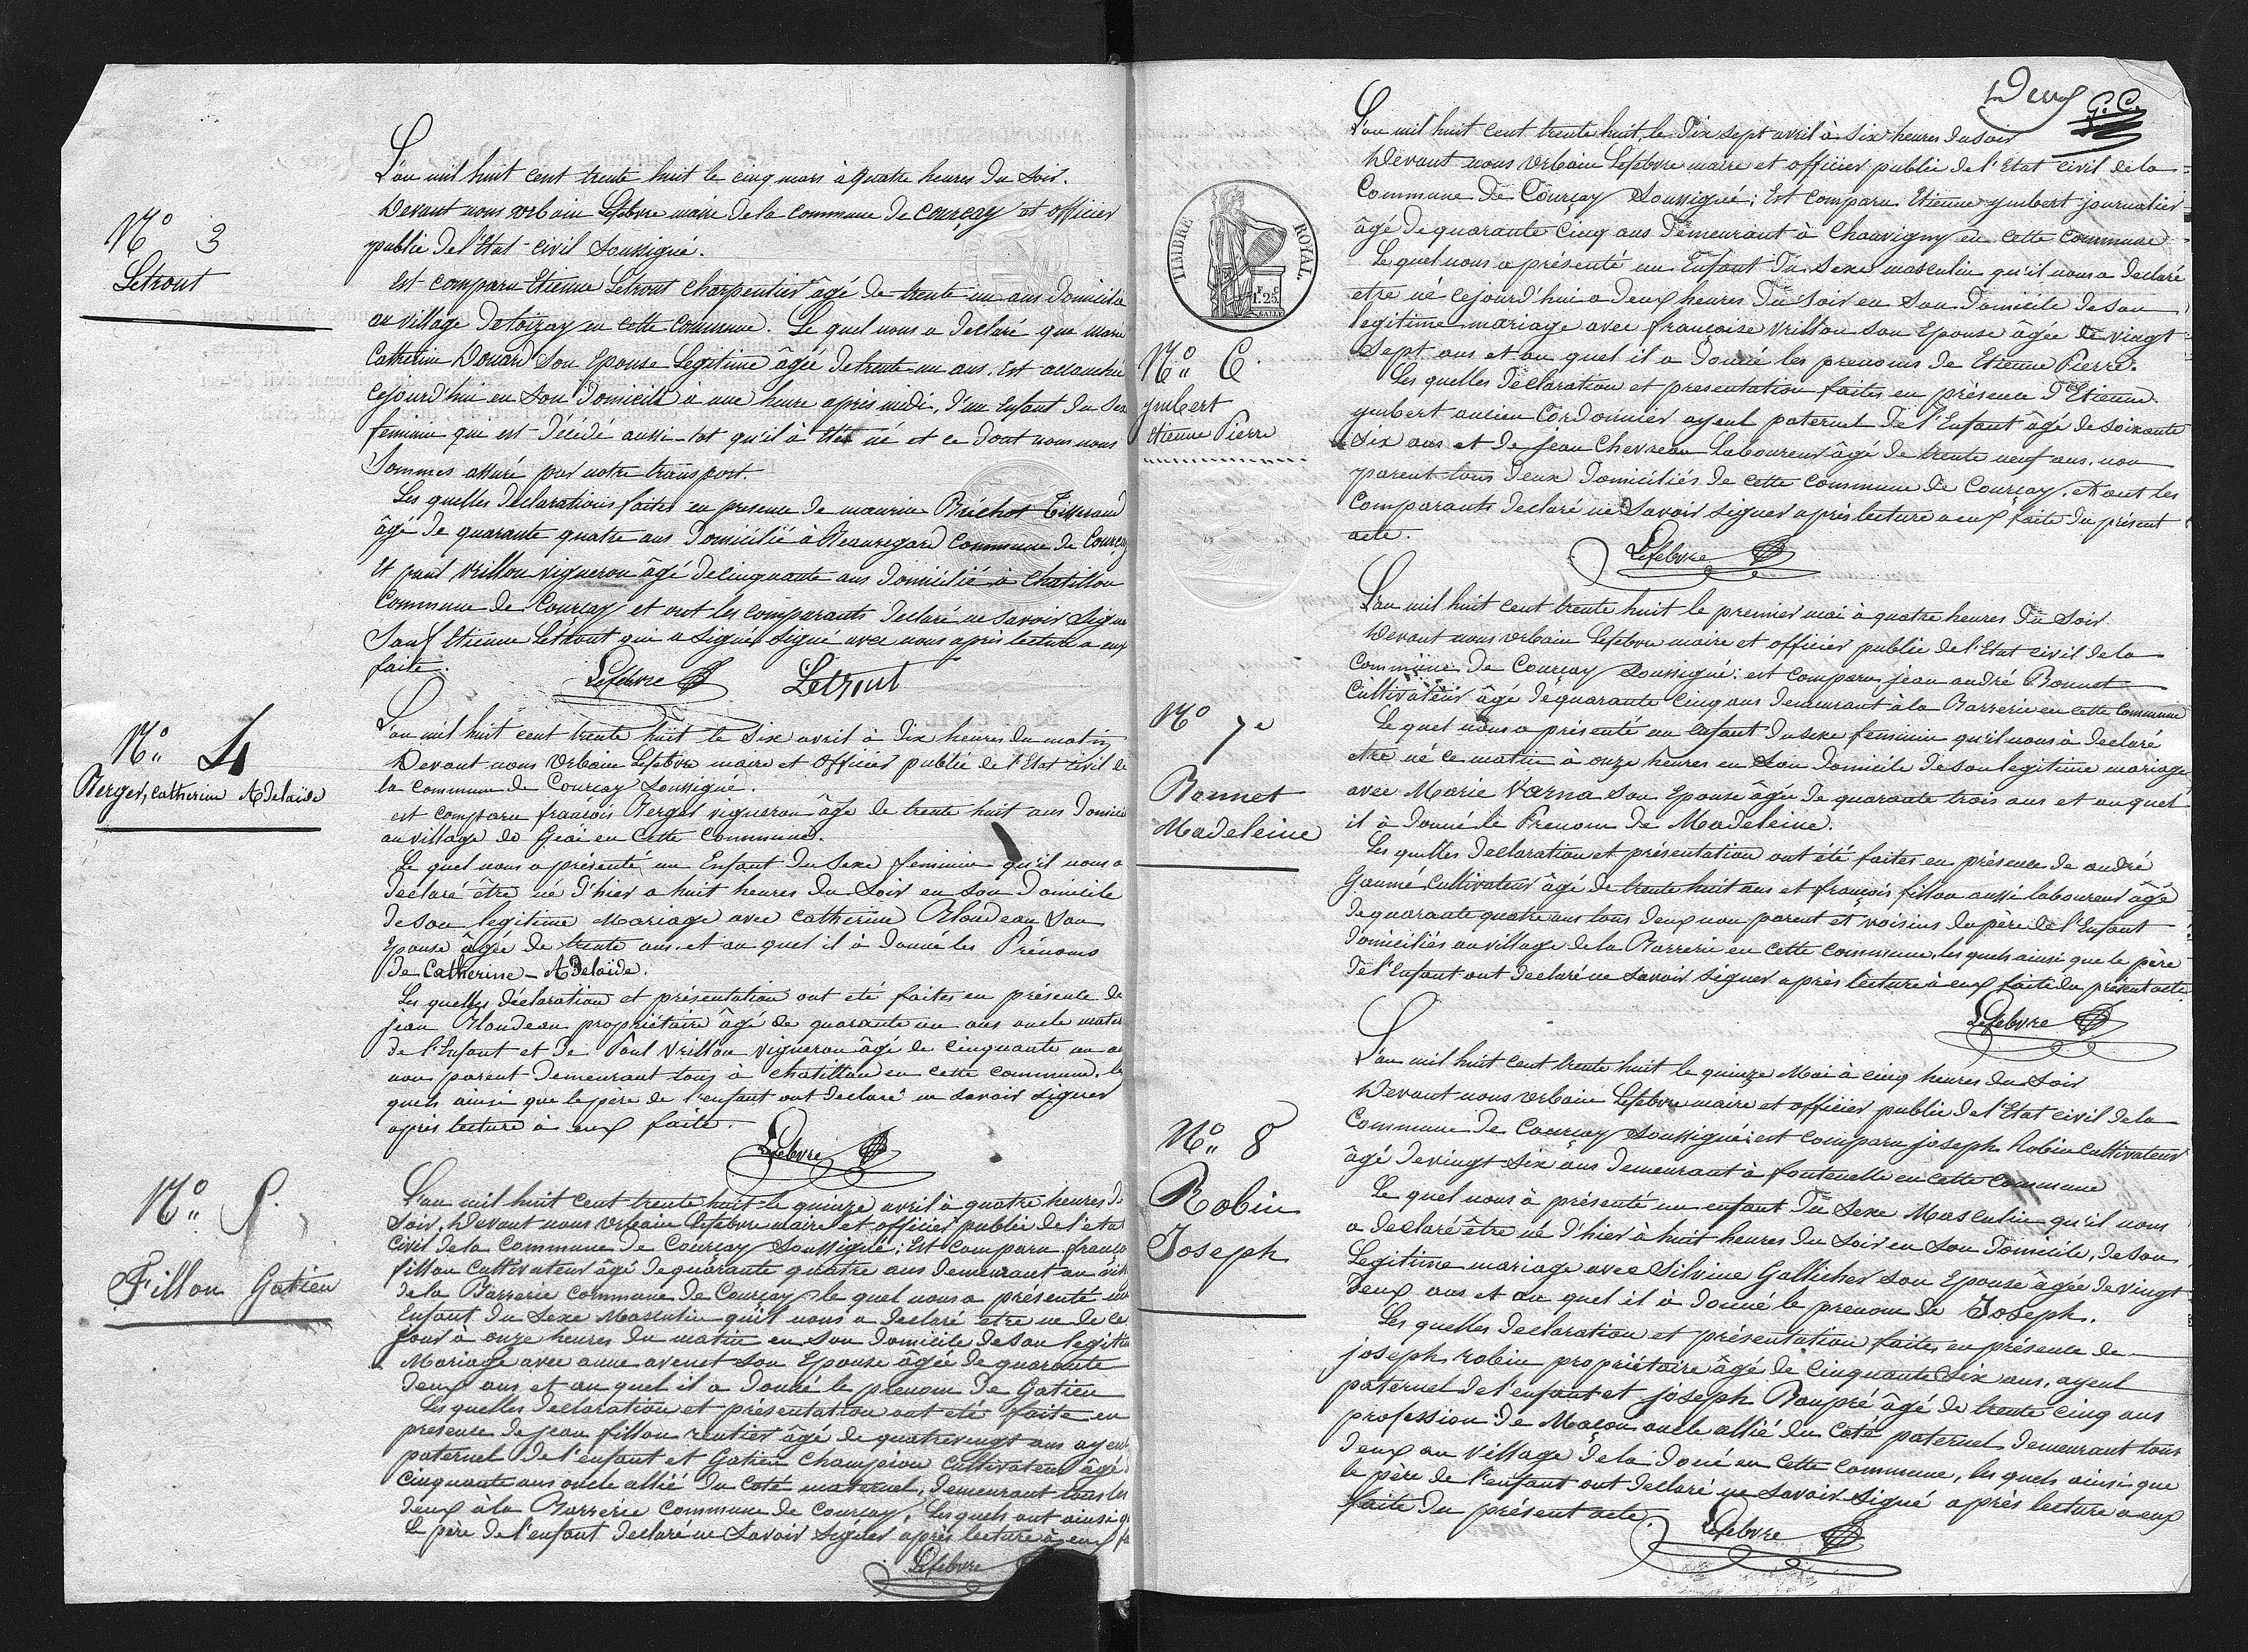 N° 3
Letrout
L'an mil huit cent trente huit le cinq mars à quatre heures du soir.
Devant nous urbain Lefebvre maire de la commune de courçay et officier
public de l'Etat-civil soussigné.
Est comparu Etienne Letrout charpentier âgé de trente un ans domicilié
au village de toizay en cette commune. Le quel nous a déclaré que marie
Catherine Douard son Epouse Legitime âgée de trente un ans. Est accouchée
cejourd'hui en son Domicile à une heure après midi, d'un Enfant du sexe
feminin qui est décédé aussi-tot qu'il à étét né et ce dont nous nous
Sommes assuré par notre transport.
Les quelles déclarations faites en presence de maurice Bréchot Tisserand
âgé de quarante quatre ans Domicilié à Beauregard Commune de Courçay
Et paul Vrillon vigneron âgé de cinquante ans Domicilié à Chatillon
Commune de Courçay et ont les comparants déclaré ne savoir signer
Sauf Etienne Letrout qui a signé signé avec nous après lecture a eux
faite.
Lefebvre Letrout
N° 4
Berger, catherine Adelaïde
L'an mil huit cent trente huit le six avril à dix heures du matin
Devant nous Urbain Lefebvre maire et officier public de l'Etat civil de
la commune de Courçay soussigné.
est comparu françois Berger vigneron âgé de trente huit ans Domicilié
au village de Geai en cette commune.
Le quel nous a présenté un Enfant du sexe feminin qu'il nous a
déclaré être né d'hier a huit heures du soir en son Domicile
de son legitime mariage avec catherine Blondeau son
Epouse âgée de trente ans. et au quel il à donné les Prénoms
de Catherine-Adelaïde.
Les quelles déclaration et présentation ont été faites en présence de
jean Blondeau propriétaire âgé de quarante un ans oncle mater
de l'Enfant et de Paul Vrillon vigneron âgé de cinquante un a
non parent demeurant tous à chatillon en cette commune. les
quels ainsi que le père de l'enfant ont déclaré ne savoir signer
après lecture à eux faite.
Lefebvre
N° 5.
Fillon Gatien
L'an mil huit cent trente huit le quinze avril à quatre heures du
Soir, Devant nous urbain Lefebvre maire et officier public de l'état
Civil de la Commune de Courçay soussigné; Est comparu franço
fillon cultivateur âgé de quarante quatre ans demeurant au vill
de la Barrerie commune de Courçay le quel nous a présenté un
Enfant du sexe Masculin qu'il nous a declaré etre né de ce
jour à onze heures du matin en son domicile de son legitime
Mariage avec anne avenet son Epouse âgée de quarante
deux ans et au quel il a donné le prenom de Gatien
Les quelles déclaration et présentation ont eté faite en
presence de jean fillon rentier âgé de quatrevingt ans ayeul
paternel de l'enfant et Gatien Champeiou cultivateur âgé
cinquante ans oncle allié du coté maternel, demeurant tous les
deux à la Barrerie commune de Courçay, Les quels ont ainsi q
le père de l'enfant declaré ne savoir signer après lecture à eux fa
Lefebvre
Deux
G. C.
TIMBRE ROYAL
1.25
N° 6.
ymbert
Etienne Pierre
L'an mil huit cent trente huit, le Dix sept avril à six heures du soir
Devant nous Urbain Lefebvre maire et officier public de l'Etat civil de la
Commune de Courçay Soussigné; Est comparu Etienne ymbert journalier
âgé de quarante cinq ans demeurant à Chauvigny en cette commune
Le quel nous a présenté un Enfant du sexe masculin qu'il nous a declaré
etre né cejourd'hui a deux heures du soir en son domicile de son
legitime mariage avec francoise vrillon son Epouse âgée de vingt
sept ans et au quel il a donné les prenoms de Etienne Pierre.
Les quelles déclaration et presentation faites en présence d'Etienne
ymbert ancien cordonnier ayeul paternel de l'Enfant âgé de soixante
dix ans et de jean Chevreau Laboureur âgé de trente neuf ans. non
parent tous deux domiciliés de cette commune de Courçay. et ont les
Comparants declaré ne savoir signer après lecture a eux faite du présent
acte.
Lefebvre
N° 7e
Bonnet
Madeleine
L'an mil huit cent trente huit le premier mai à quatre heures du soir
Devant nous urbain Lefebvre maire et officier public de l'Etat civil de la
Commune de Courçay soussigné: est comparu jean andré Bonnet
Cultivateur âgé de quarante cinq ans demeurant à la Barrerie en cette Commune
Le quel nous a présenté un enfant du sexe feminin qu'il nous à declaré
etre né ce matin à onze heures en son domicile de son legitime mariage
avec Marie Varna son Epouse âgée de quarante trois ans et au quel
il à donné le Prenom de Madeleine.
Les quelles déclaration et présentation ont été faites en présence de andré
Gaumé cultivateur âgé de trente huit ans et françois fillon aussi laboureur âgé
de quarante quatre ans tous deux non parent et voisins du père de l'Enfant
domiciliés au village de la Barrerie en cette commune, les quels ainsi que le père
de l'Enfant ont declaré ne savoir signer après lecture à eux faite du présent acte
Lefebvre
N° 8
Robin
Joseph
L'an mil huit cent trente huit le quinze Mai à cinq heures du soir
Devant nous urbain Lefebvre maire et officier public de l'Etat civil de la
Commune de Courçay soussigné: est comparu joseph Robin cultivateur
âgé de vingt six ans demeurant à fontenelle en cette commune
Le quel nous à présenté un enfant du sexe Masculin qu'il nous
a declaré être né d'hier à huit heures du soir en son domicile, de son
Legitime mariage avec Silvine Gallicher son Epouse âgée de vingt
deux ans et au quel il à donné le prenom de Joseph.
Les quelles declaration et présentation faites en présence de
joseph robin propriétaire âgé de cinquante six ans, ayeul
paternel de l'enfant et joseph Baupré âgé de trente cinq ans
profession de Maçon oncle allié du coté paternel demeurant tous
deux au village de la doué en cette commune, les quels ainsi que
le père de l'enfant ont declaré ne savoir signé après lecture a eux
faite du présent acte.
Lefebvre